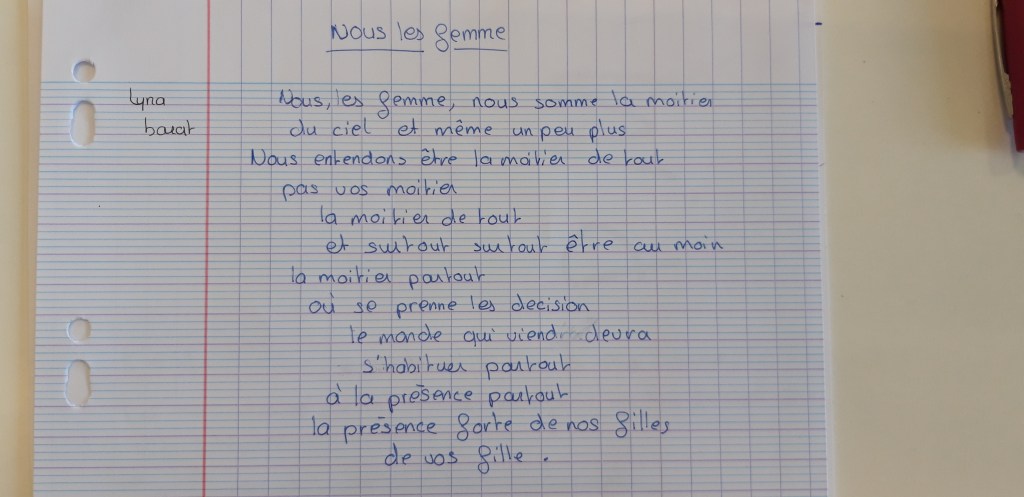 Nous les femme
Lyna
bouat
Nous, les femme, nous somme la moitier
du ciel et même un peu plus
Nous entendons être la moitier de tout
pas vos moitier
la moitier de tout
et surtout surtout être au moin
la moitier partout
où se prenne les decision
le monde qui viend devra
s'habituer partout
à la présence partout
la présence forte de nos filles
de vos fille.